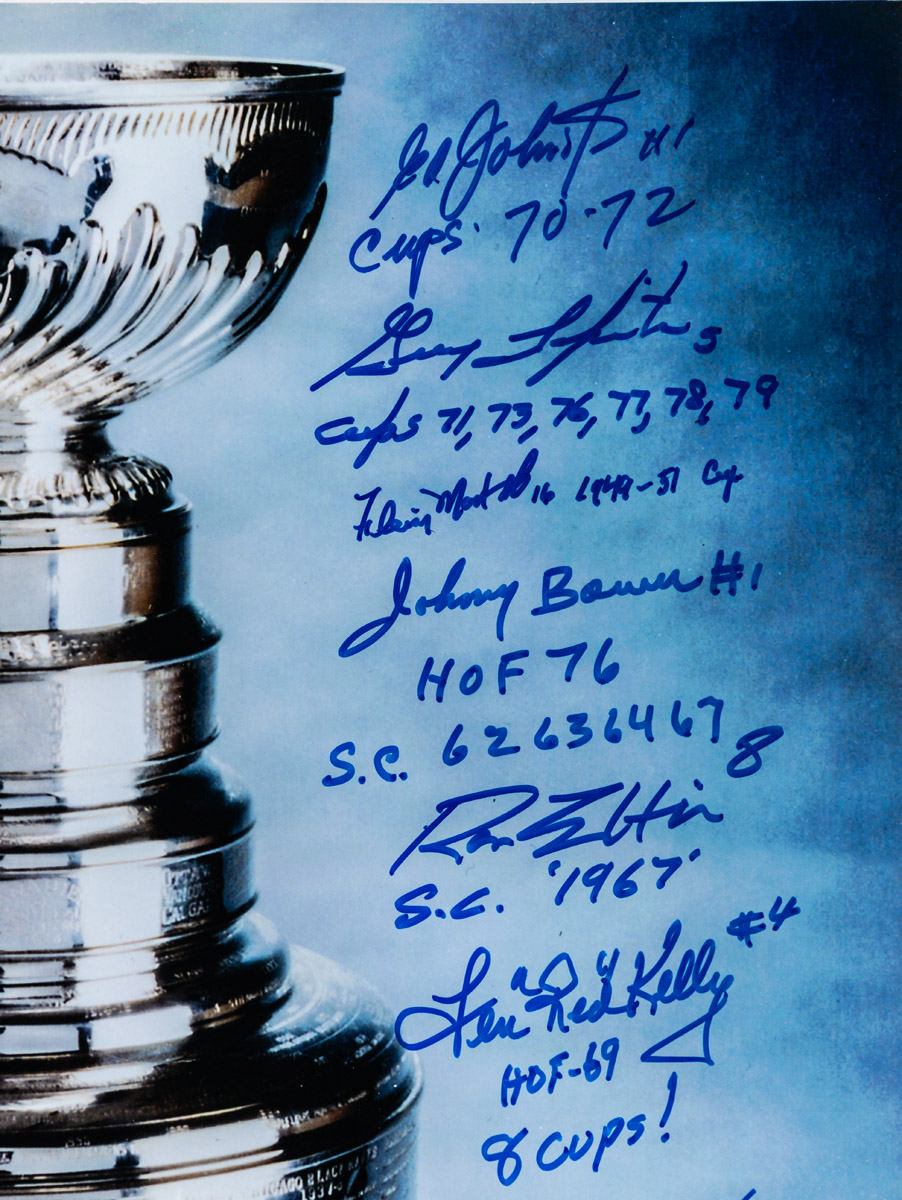 Ed. Johnston #1
Cups 70-72
Guy Lapointe 5
Cups 71, 73, 76, 77, 78, 79
16 1949-51 Cup
Johnny Bower #1
HOF 76
S.C. 62 63 64 67
8
Ron Ellis
S.C. '1967'
Leonard "Red" Kelly #4
HOF-69
8 CUPS!
CALGA
CHICAGO BLACK HAWKS